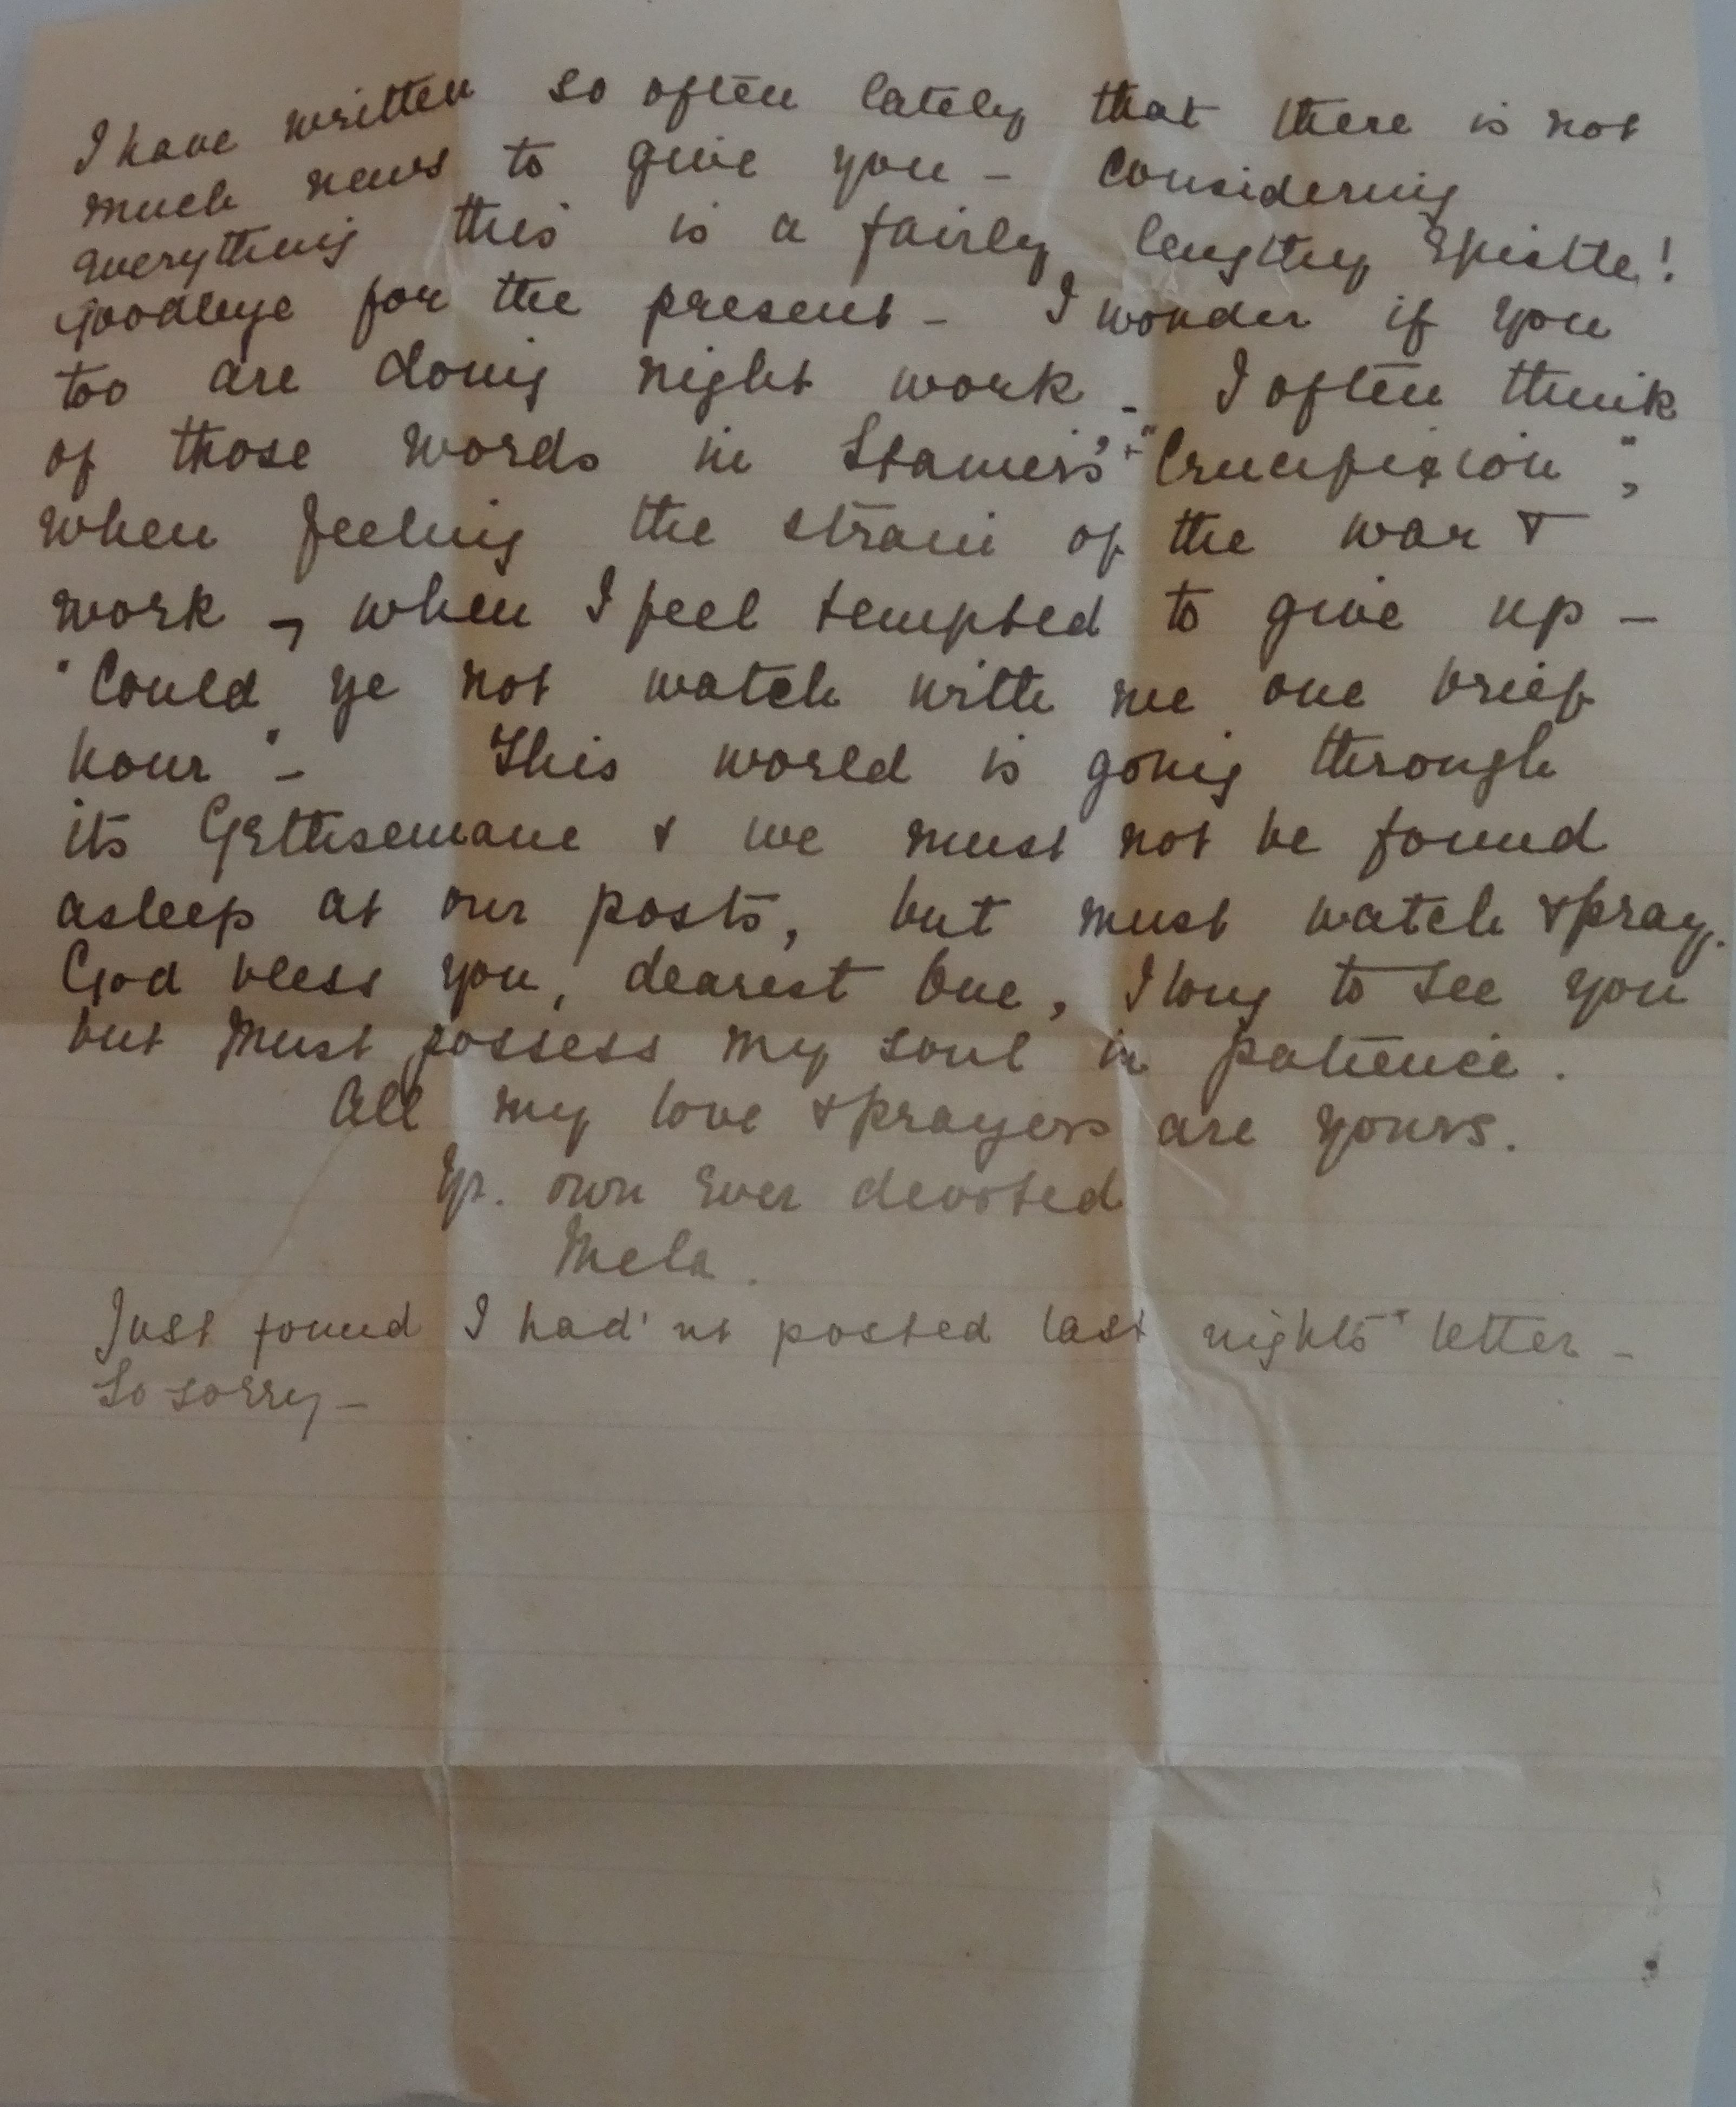 I have written so often lately that there is not
much news to give you - Considering
everything this is a fairly lengthy Epistle!
Goodbye for the present - I wonder if you
too are doing night work - I often think
of those words in Stainer's "Crucifixion",
when feeling the strain of the war &
work -, when I feel tempted to give up -
"Could ye not watch with me one brief
hour" - This world is going through
its Gethsemane & we must not be found
asleep at our posts, but must watch & pray.
God bless you, dearest One, I long to see you
but must possess my soul in patience.
All my love & prayers are yours.
Yr. own ever devoted
Mela.
Just found I had'nt posted last nights' letter -
So sorry -